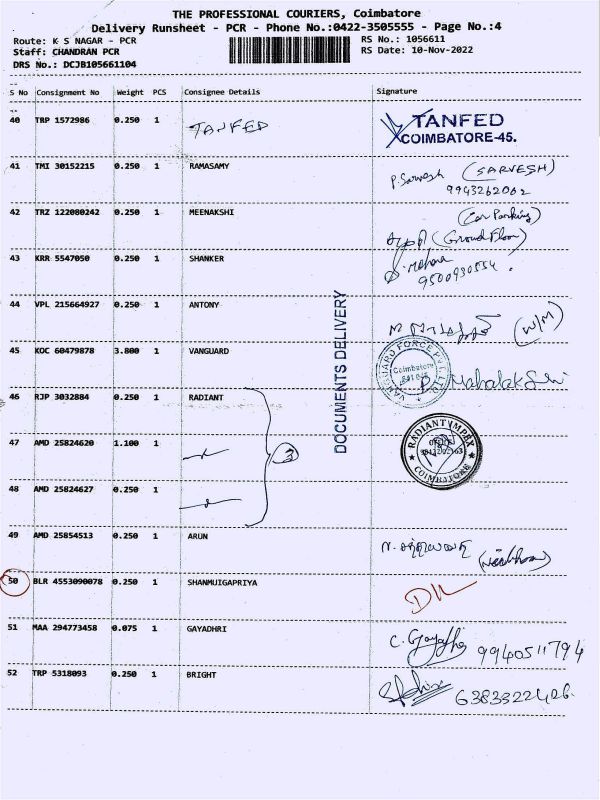 THE PROFESSIONAL COURIERS, Coimbatore
Delivery Runsheet - PCR - Phone No.:0422-3505555 - Page No.:4
Route: K S NAGAR - PCR
RS No.: 1056611
Staff: CHANDRAN PCR
RS Date: 10-Nov-2022
DRS No.: DCJB105661104
S No Consignment No Weight PCS Consignee Details Signature
40 TRP 1572986 0.250 1 TANFED
TANFED
COIMBATORE-45.
41 TMI 30152215 0.250 1 RAMASAMY
P. Sarvesh (SARVESH)
9943262002
42 TRZ 122080242 0.250 1 MEENAKSHI
(Car Parking)
(Ground Floor)
43 KRR 5547050 0.250 1 SHANKER
9500930554.
44 VPL 215664927 0.250 1 ANTONY
(W/M)
45 KOC 60479878 3.800 1 VANGUARD
VANGUARD FORCE PVT. LTD.
Coimbatore
DOCUMENTS DELIVERY
46 RJP 3032884 0.250 1 RADIANT
47 AMD 25824620 1.100 1
3
RADIANT IMPEX
COIMBATORE
48 AMD 25824627 0.250 1
49 AMD 25854513 0.250 1 ARUN
50 BLR 4553090078 0.250 1 SHANMUIGAPRIYA
DL
51 MAA 294773458 0.075 1 GAYADHRI
9940511794
52 TRP 5318093 0.250 1 BRIGHT